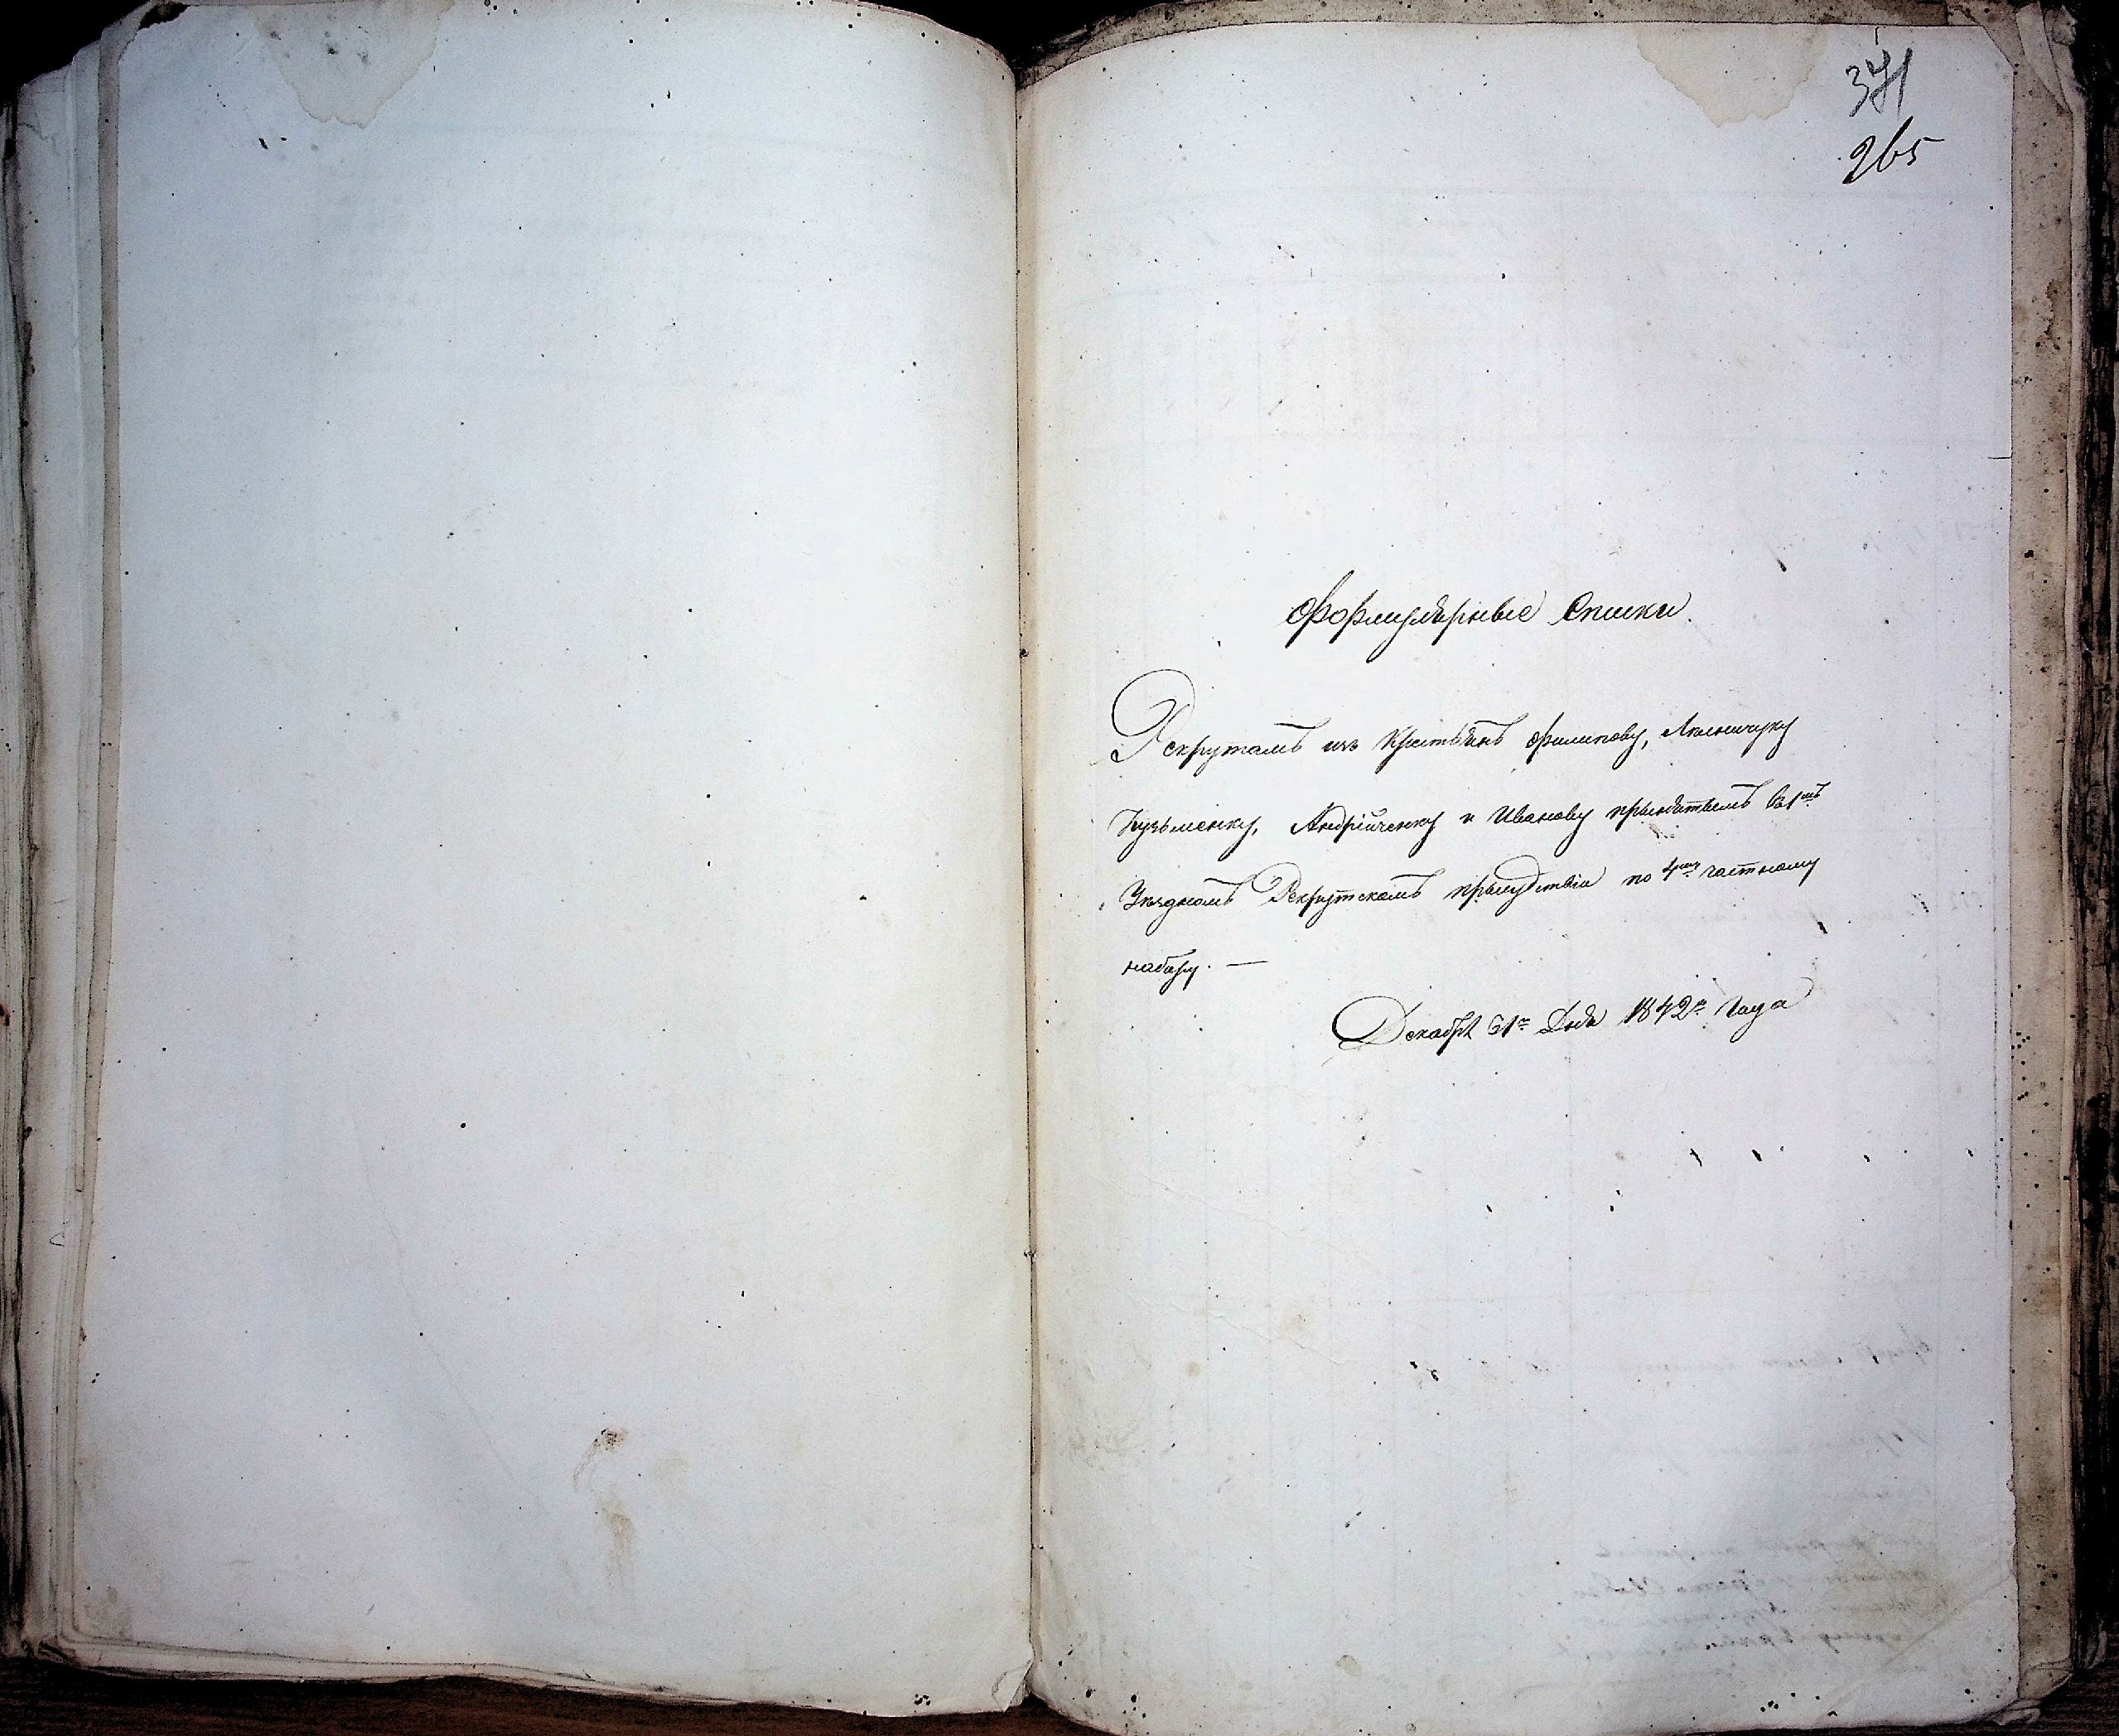 371
265
Формулярные Списки.
Рекрутамъ изъ Крестьянъ Филипову,
Кузьменку, Андрійченку и Иванову принятымъ въ 1мъ
Уѣздномъ Рекрутскомъ присудствіи по 4му частному
набору. —
Декабря 31го Дня 1842го Года